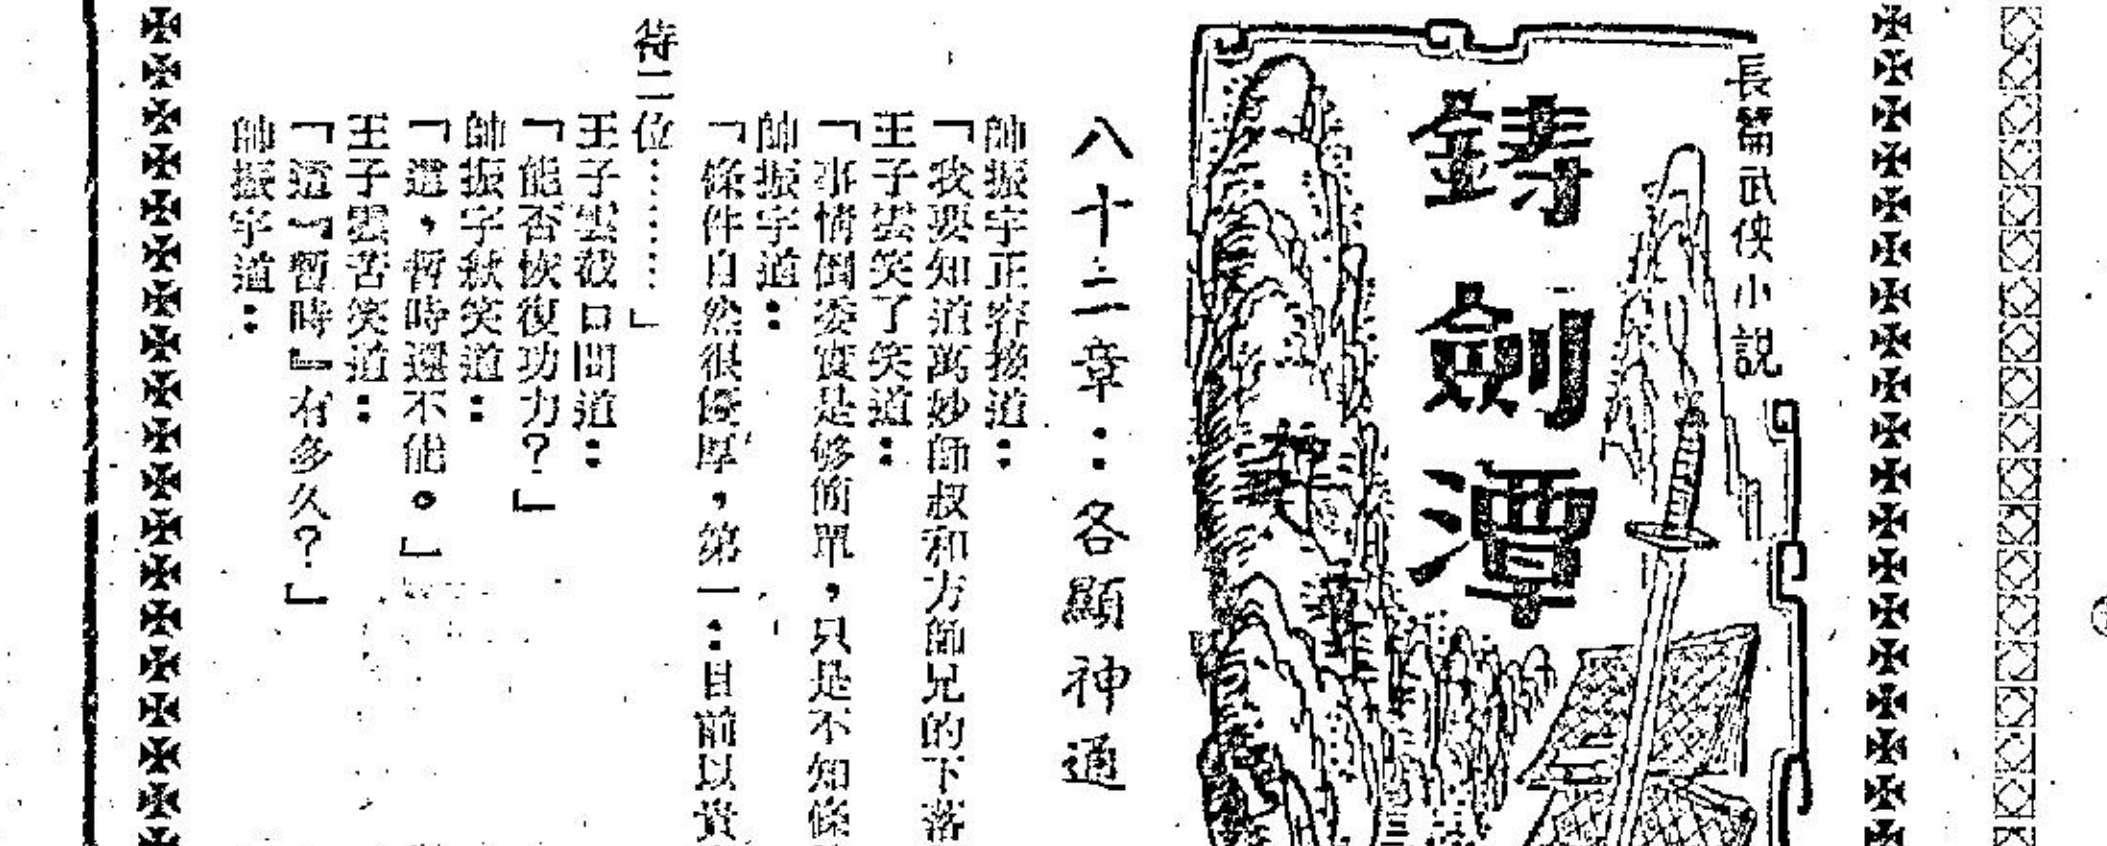 長篇武俠小説
鑄劍潭
八十二章：各顯神通
帥振宇正容接道：
「我要知道萬妙師叔和方師兄的下落
王子雲笑了笑道：
「事情倒委實是够簡單，只是不知條
帥振宇道：
「條件自然很優厚，第一：目前以貴
待二位………」
王子雲截口問道：
「能否恢復功力？」
帥振宇歉笑道：
「這，暫時還不能。」
王子雲苦笑道：
「這『暫時』有多久？」
帥振宇道：